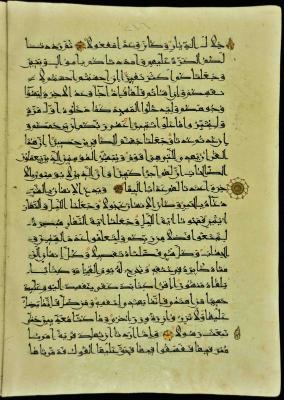 خلال الديار وكان وعدا مفعولا ثم رددنا
لكم الكرة عليهم وامددناكم باموال وبنين
وجعلناكم اكثر نفيرا ان احسنتم احسنتم لا
نفسكم وان اساتم فلها فاذا جاء وعد الاخرة ليسوءوا
وجوهكم وليدخلوا المسجد كما دخلوه اول مرة
وليتبروا ما علوا تتبيرا عسى ربكم ان يرحمكم و
ان عدتم عدنا وجعلنا جهنم للكافرين حصيرا ان هذا
القران يهدي للتي هي اقوم ويبشر المؤمنين الذين يعملون
الصالحات ان لهم اجرا كبيرا وان الذين لا يؤمنون بالا
خرة اعتدنا لهم عذابا اليما ويدع الانسان بالشر
دعاءه بالخير وكان الانسان عجولا وجعلنا الليل والنهار
ايتين فمحونا اية الليل وجعلنا اية النهار مبصرة
لتبتغوا فضلا من ربكم ولتعلموا عدد السنين و
الحساب وكل شيء فصلناه تفصيلا وكل انسان الز
مناه طائره في عنقه ونخرج له يوم القيامة كتابا
يلقاه منشورا اقرا كتابك كفى بنفسك اليوم عليك
حسيبا من اهتدى فانما يهتدي لنفسه ومن ضل فانما يضل
عليها ولا تزر وازرة وزر اخرى وما كنا معذبين حتى
نبعث رسولا واذا اردنا ان نهلك قرية امرنا
مترفيها ففسقوا فيها فحق عليها القول فدمرناها